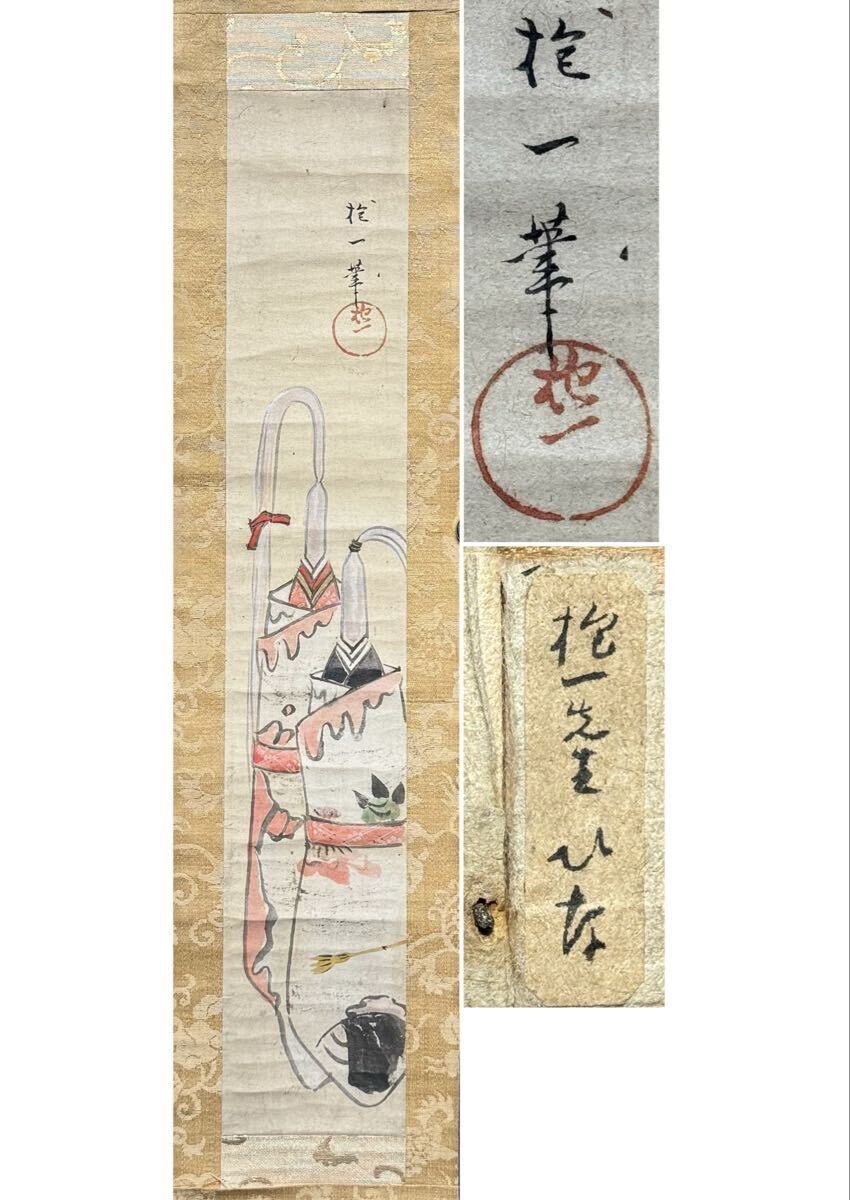 抱一筆
抱一
抱一筆
抱一
抱一先生 ひな